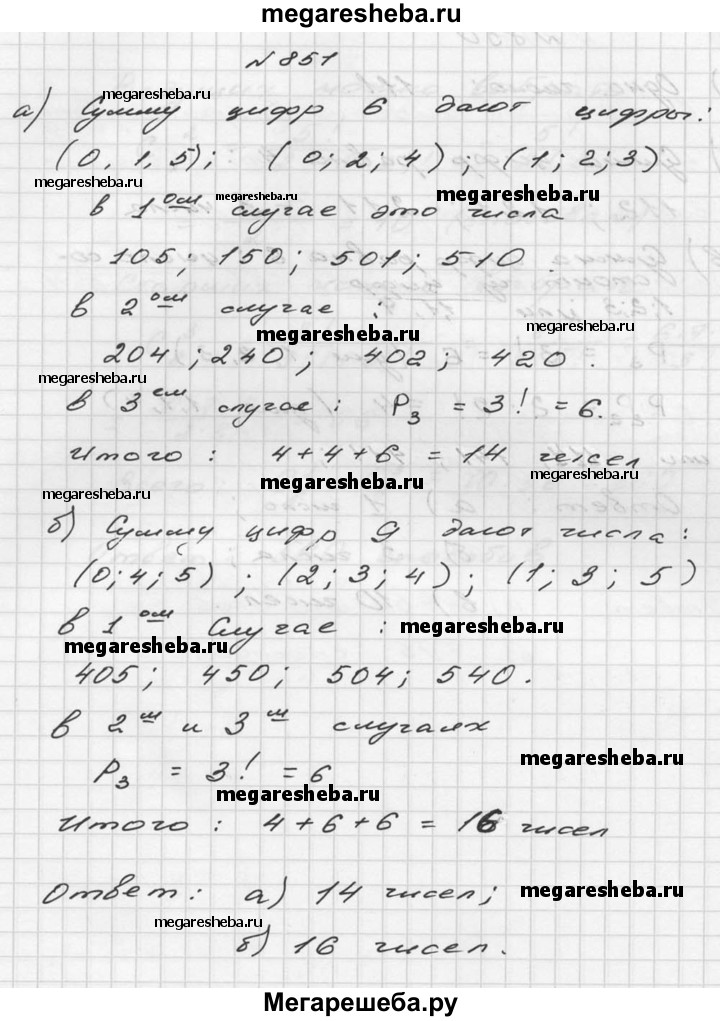 megaresheba.ru
N 851
megaresheba.ru
а) Сумму цифр 6 дают цифры:
(0, 1, 5); (0; 2; 4); (1; 2; 3)
megaresheba.ru megaresheba.ru megaresheba.ru
в 1ом случае это числа
105; 150; 501; 510.
в 2ом случае:
megaresheba.ru megaresheba.ru
204; 240; 402; 420.
megaresheba.ru
в 3ем случае: P3 = 3! = 6.
Итого: 4+4+6 = 14 чисел
megaresheba.ru megaresheba.ru megaresheba.ru
б) Сумму цифр 9 дают числа:
(0; 4; 5); (2; 3; 4); (1; 3; 5)
в 1ом Случае:
megaresheba.ru megaresheba.ru
405; 450; 504; 540.
в 2м и 3м случаях
megaresheba.ru
P3 = 3! = 6
megaresheba.ru
Итого: 4+6+6 = 16 чисел
Ответ: а) 14 чисел;
megaresheba.ru megaresheba.ru
б) 16 чисел.
Мегарешеба.ру